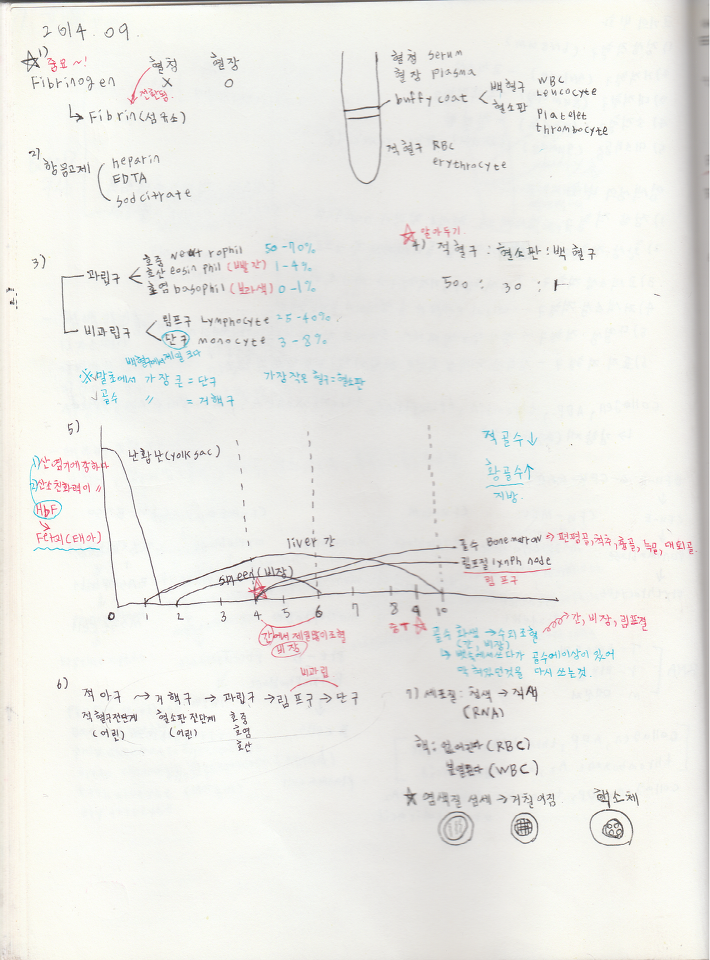 2014.09.
1)
☆ 중요~! 혈청 혈장
Fibrinogen X O
전환됨.
↳ Fibrin(섬유소)
혈청 serum
혈장 plasma
buffy coat < 백혈구 WBC Leucocyte
혈소판 platelet thrombocyte
적혈구 RBC
erythrocyte
2) 항응고제
heparin
EDTA
sod citrate
3)
과립구
호중 neutrophil 50-70%
호산 eosinphil (빨간) 1-4%
호염 basophil (보라색) 0-1%
비과립구
림프구 Lymphocyte 25-40%
단구 monocyte 3-8%
백혈구에서 제일 크다
※ √ 말초에서 가장 큰 = 단구 가장 작은 혈구 = 혈소판
√ 골수 〃 = 거핵구
☆ 알아두기.
4) 적혈구 : 혈소판 : 백혈구
500 : 30 : 1
5)
난황낭(yolk sac)
1)산, 염기에 강하다
2)산소친화력이 〃
HbF
→ Fetal(태아)
적골수↓
황골수↑
지방
liver 간
spleen(비장)
골수 Bonemarrow → 편평골, 척추, 흉골, 늑골, 대퇴골.
림프절 lymph node
림프구
0 1 2 3 4 5 6 7 8 9 10
간에서 제일 많이 조혈
비장
출생
골수 화생 → 수외조혈 → 간, 비장, 림프절
(간, 비장)
↳ 뱃속에 쓰다가 골수에 이상이 있어
다시 쓰는것.
6)
비과립
적아구 → 거핵구 → 과립구 → 림프구 → 단구
적혈구전단계 혈소판 전단계 호중
(어린) (어린) 호염
호산
7) 세포질 : 청색 → 적색
(RNA)
핵 : 없어진다(RBC)
분열된다(WBC)
☆ 염색질 섬세 → 거칠어짐. 핵소체